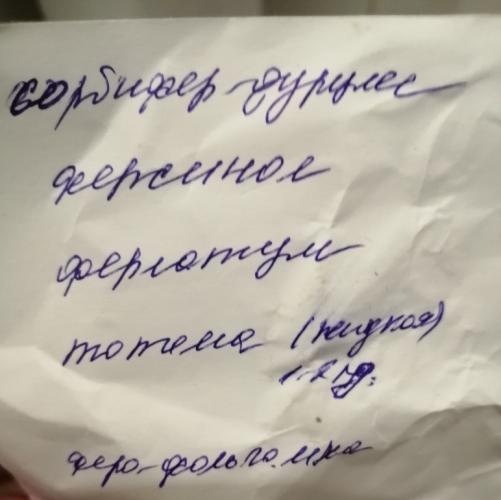 сорбифер-дурулес
фержинол
ферлатум
тотема (жидкая)
феро-фольгамма